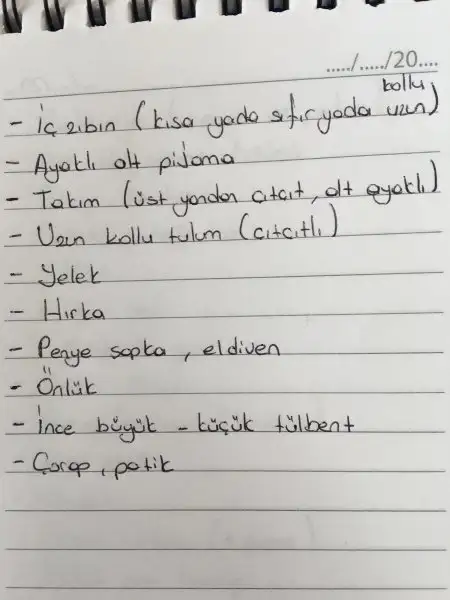 ...../...../20....
- İç zıbın (kısa yada sıfır yada uzun kollu)
- Ayaklı alt pijama
- Takım (üst yandan çıtçıt, alt ayaklı)
- Uzun kollu tulum (çıtçıtlı)
- Yelek
- Hırka
- Penye şapka, eldiven
- Önlük
- İnce büyük - küçük tülbent
- Çorap, patik